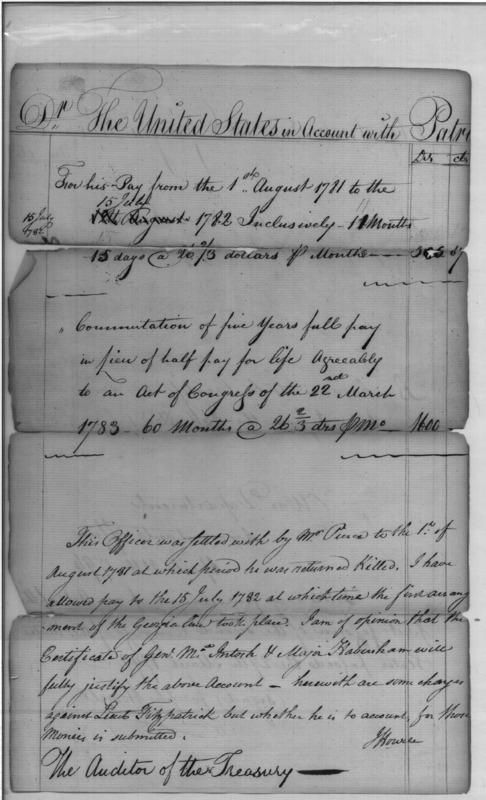 Dr The United States in Account with Patri
Drs cts
For his Pay from the 1st August 1781 to the
15 July
15 July 1782 1782 Inclusively - 11 Months
15 days @ 26 2/3 dollars ⅌ Month
" Commutation of five Years full pay
in lieu of half pay for life Agreeably
to an Act of Congress of the 22nd March
1783 - 60 Months @ 26 2/3 drs ⅌ Mo - 1600 -
This Officer was settled with by Mr Pierce to the 1st of
August 1781 at which period he was returned Killed. I have
allowed pay to the 15 July 1782 at which time the first arrang
ment of the Georgia line took place. I am of opinion that the
Certificate of Genl McIntosh & Major Habersham will
fully justify the above Account - herewith are some charges
against Lieut Fitzpatrick but whether he is to account for those
Monies is submitted.
J Howell
The Auditor of the Treasury